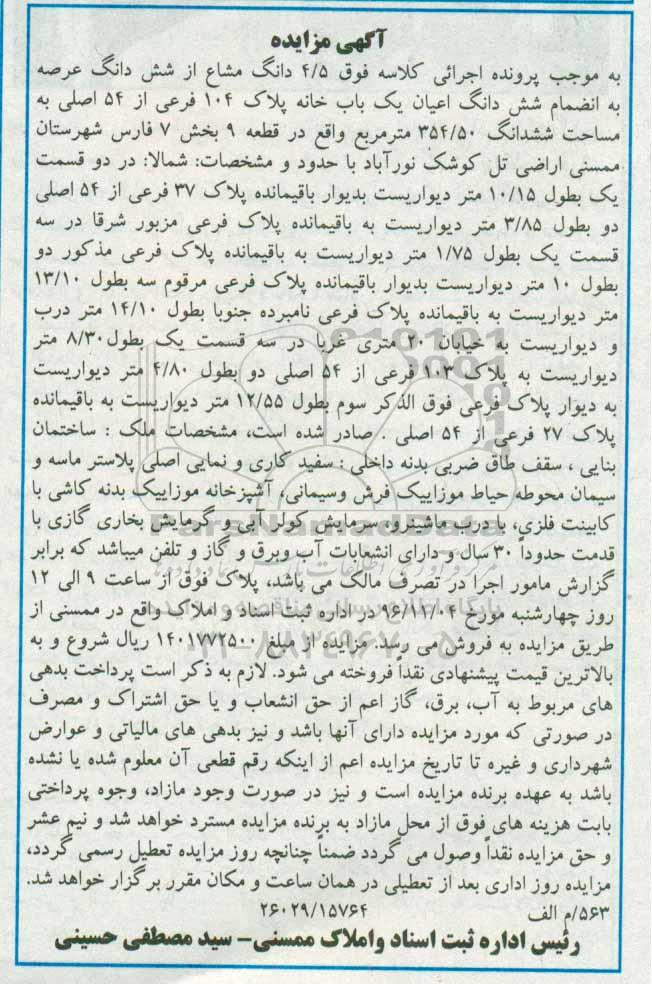 آگهی مزایده
به موجب پرونده اجرائی کلاسه فوق ۴/۵ دانگ مشاع از شش دانگ عرصه
به انضمام شش دانگ اعیان یک باب خانه پلاک ۱۰۴ فرعی از ۵۴ اصلی به
مساحت ششدانگ ۳۵۴/۵۰ مترمربع واقع در قطعه ۹ بخش ۷ فارس شهرستان
ممسنی اراضی تل کوشک نورآباد با حدود و مشخصات: شمالا: در دو قسمت
یک بطول ۱۰/۱۵ متر دیواریست بدیوار باقیمانده پلاک ۳۷ فرعی از ۵۴ اصلی
دو بطول ۳/۸۵ متر دیواریست به باقیمانده پلاک فرعی مزبور شرقا در سه
قسمت یک بطول ۱/۷۵ متر دیواریست به باقیمانده پلاک فرعی مذکور دو
بطول ۱۰ متر دیواریست بدیوار باقیمانده پلاک فرعی مرقوم سه بطول ۱۳/۱۰
متر دیواریست به باقیمانده پلاک فرعی نامبرده جنوبا بطول ۱۴/۱۰ متر درب
و دیواریست به خیابان ۲۰ متری غربا در سه قسمت یک بطول۸/۳۰ متر
دیواریست به پلاک ۱۰۳ فرعی از ۵۴ اصلی دو بطول ۴/۸۰ متر دیواریست
به دیوار پلاک فرعی فوق الذکر سوم بطول ۱۲/۵۵ متر دیواریست به باقیمانده
پلاک ۲۷ فرعی از ۵۴ اصلی . صادر شده است، مشخصات ملک : ساختمان
بنایی ، سقف طاق ضربی بدنه داخلی : سفید کاری و نمایی اصلی پلاستر ماسه و
سیمان محوطه حیاط موزاییک فرش وسیمانی، آشپزخانه موزاییک بدنه کاشی با
کابینت فلزی، با درب ماشینرو، سرمایش کولر آبی و گرمایش بخاری گازی با
قدمت حدوداً ۳۰ سال و دارای انشعابات آب وبرق و گاز و تلفن میباشد که برابر
گزارش مامور اجرا در تصرف مالک می باشد، پلاک فوق از ساعت ۹ الی ۱۲
روز چهارشنبه مورخ ۹۶/۱۱/۰۴ در اداره ثبت اسناد و املاک واقع در ممسنی از
طریق مزایده به فروش می رسد. مزایده از مبلغ ۱۴۰۱۷۷۲۵۰۰ ریال شروع و به
بالاترین قیمت پیشنهادی نقداً فروخته می شود. لازم به ذکر است پرداخت بدهی
های مربوط به آب، برق، گاز اعم از حق انشعاب و یا حق اشتراک و مصرف
در صورتی که مورد مزایده دارای آنها باشد و نیز بدهی های مالیاتی و عوارض
شهرداری و غیره تا تاریخ مزایده اعم از اینکه رقم قطعی آن معلوم شده یا نشده
باشد به عهده برنده مزایده است و نیز در صورت وجود مازاد، وجوه پرداختی
بابت هزینه های فوق از محل مازاد به برنده مزایده مسترد خواهد شد و نیم عشر
و حق مزایده نقداً وصول می گردد ضمناً چنانچه روز مزایده تعطیل رسمی گردد،
مزایده روز اداری بعد از تعطیلی در همان ساعت و مکان مقرر برگزار خواهد شد.
۵۶۳/م الف ۲۶۰۲۹/۱۵۷۶۴
رئیس اداره ثبت اسناد واملاک ممسنی- سید مصطفی حسینی
ParsNamadData